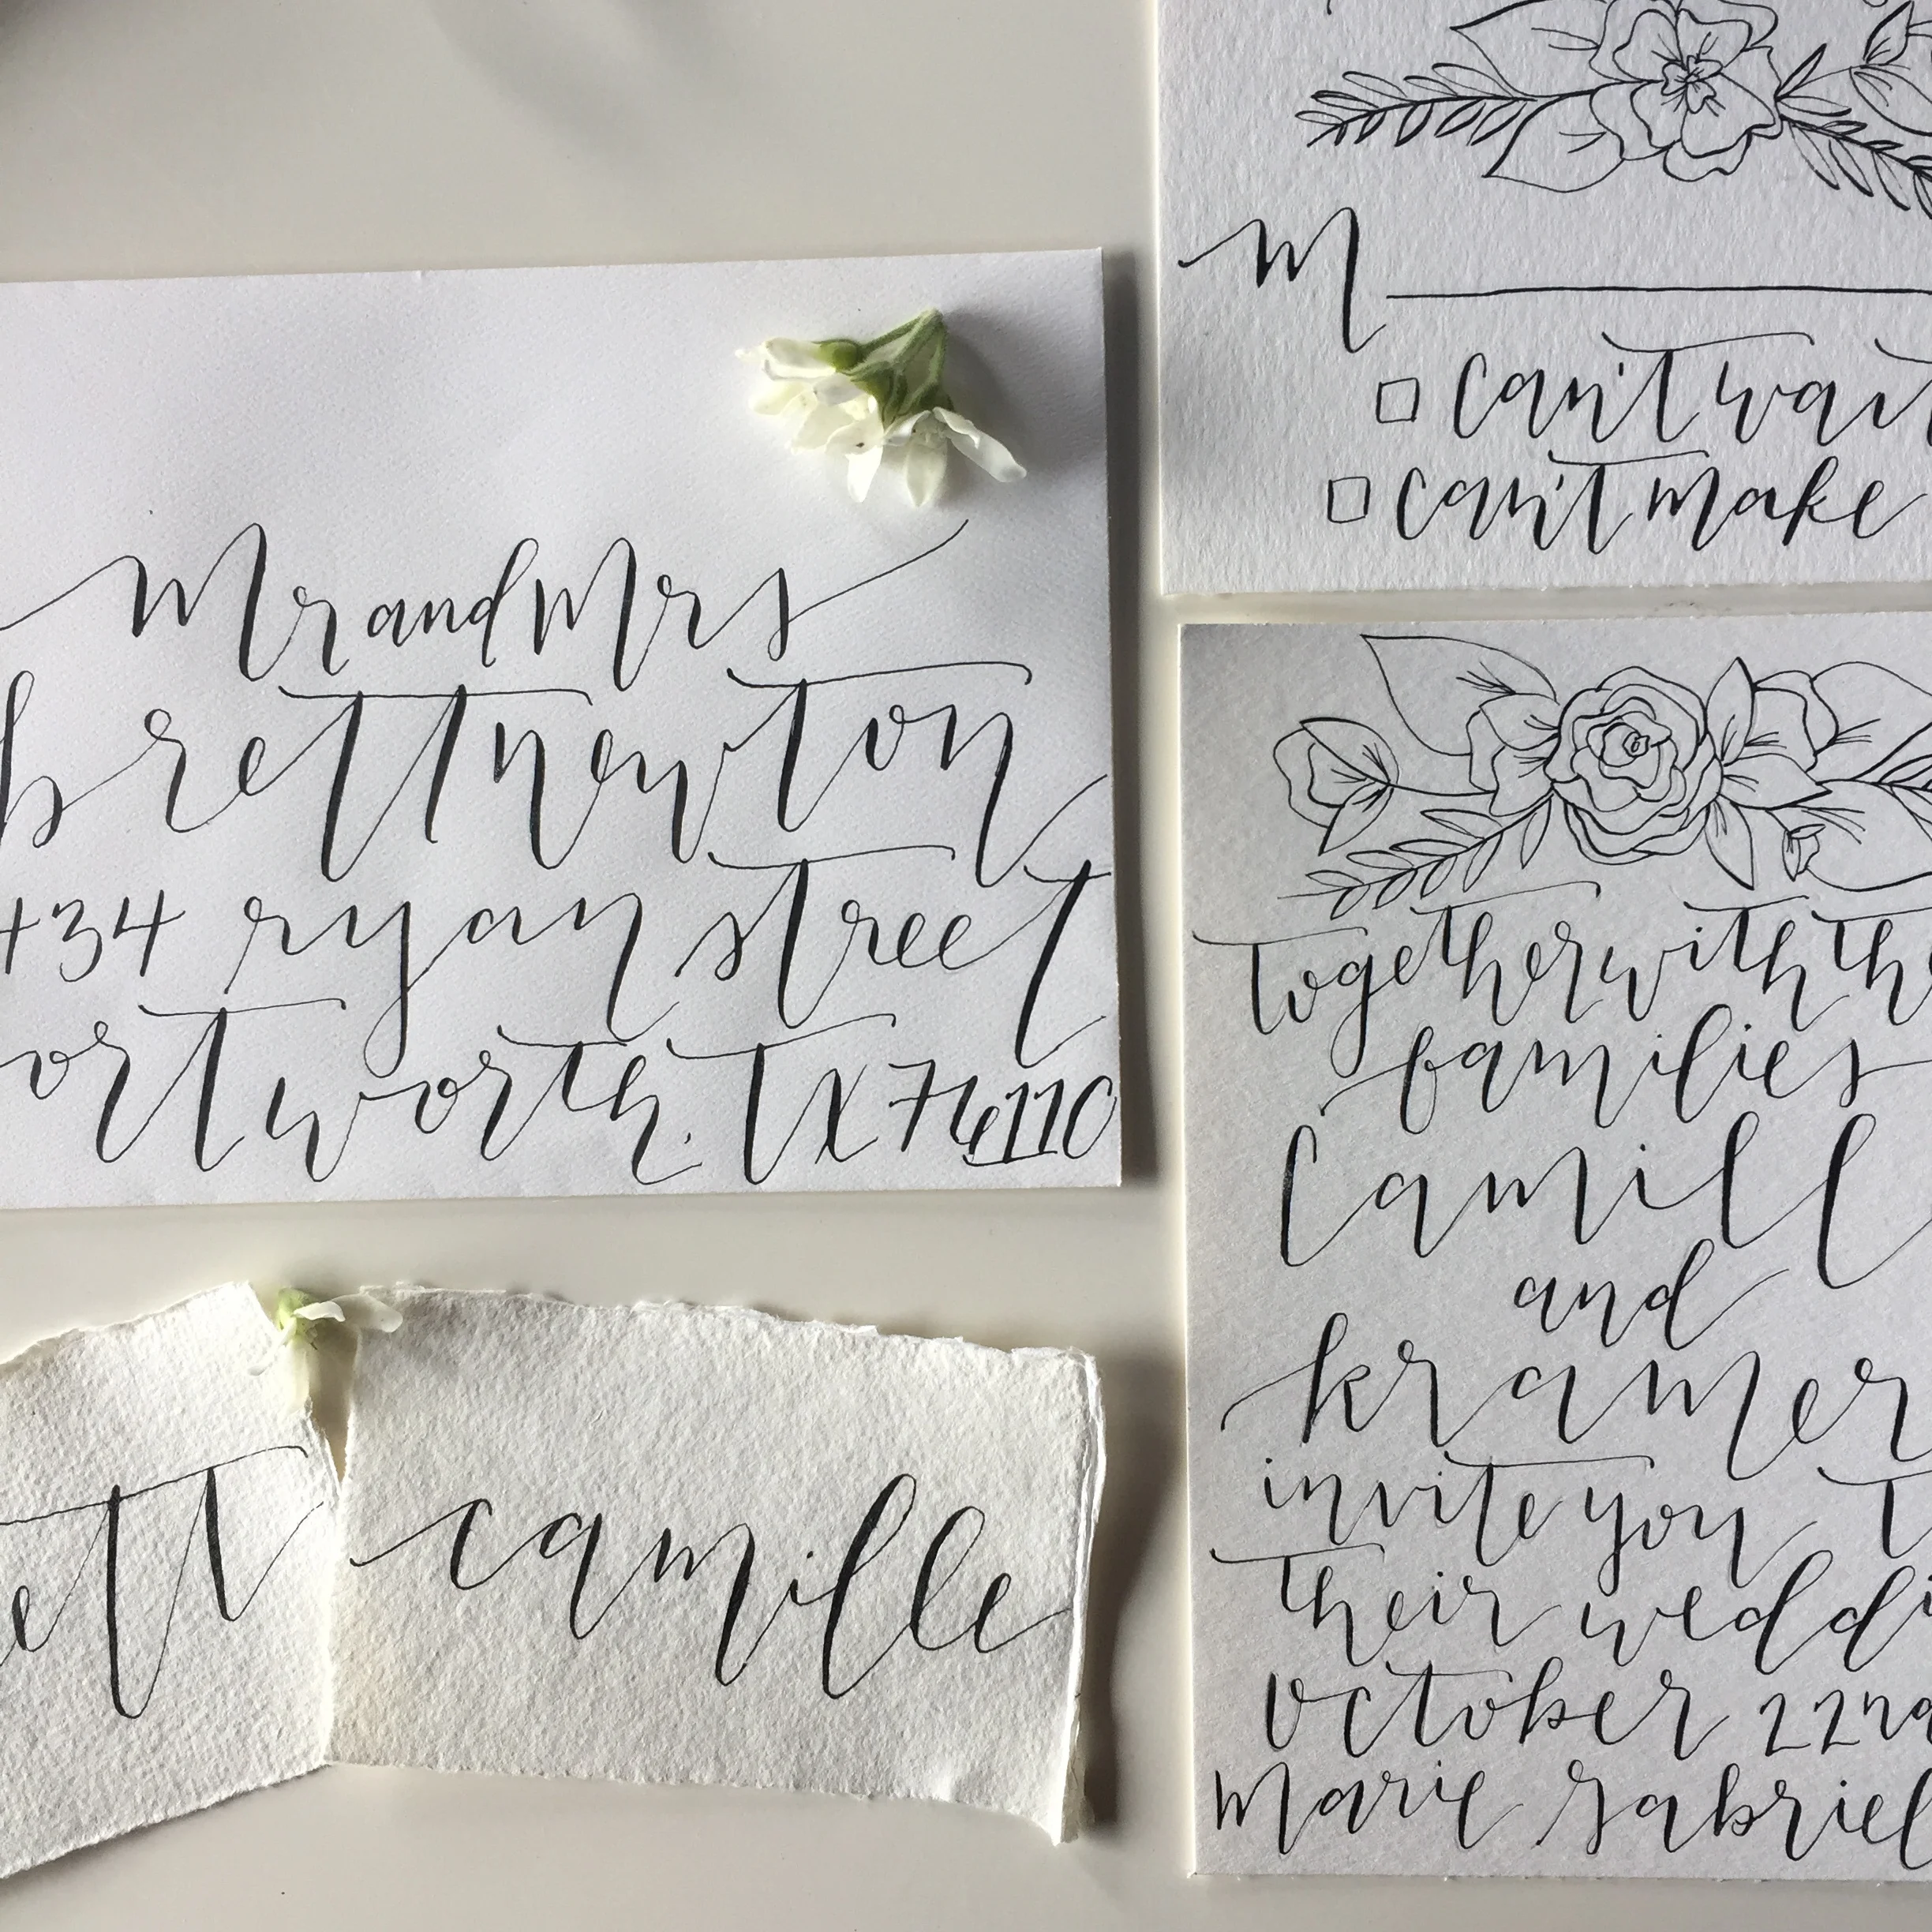 Mr and Mrs
brett newton
434 ryan street
ort worth. TX 76110
ett
camille
M
can't wait
can't make
together with the
families
Camill
and
kramer
invite you t
their weddi
October 22nd
Marie Gabriel